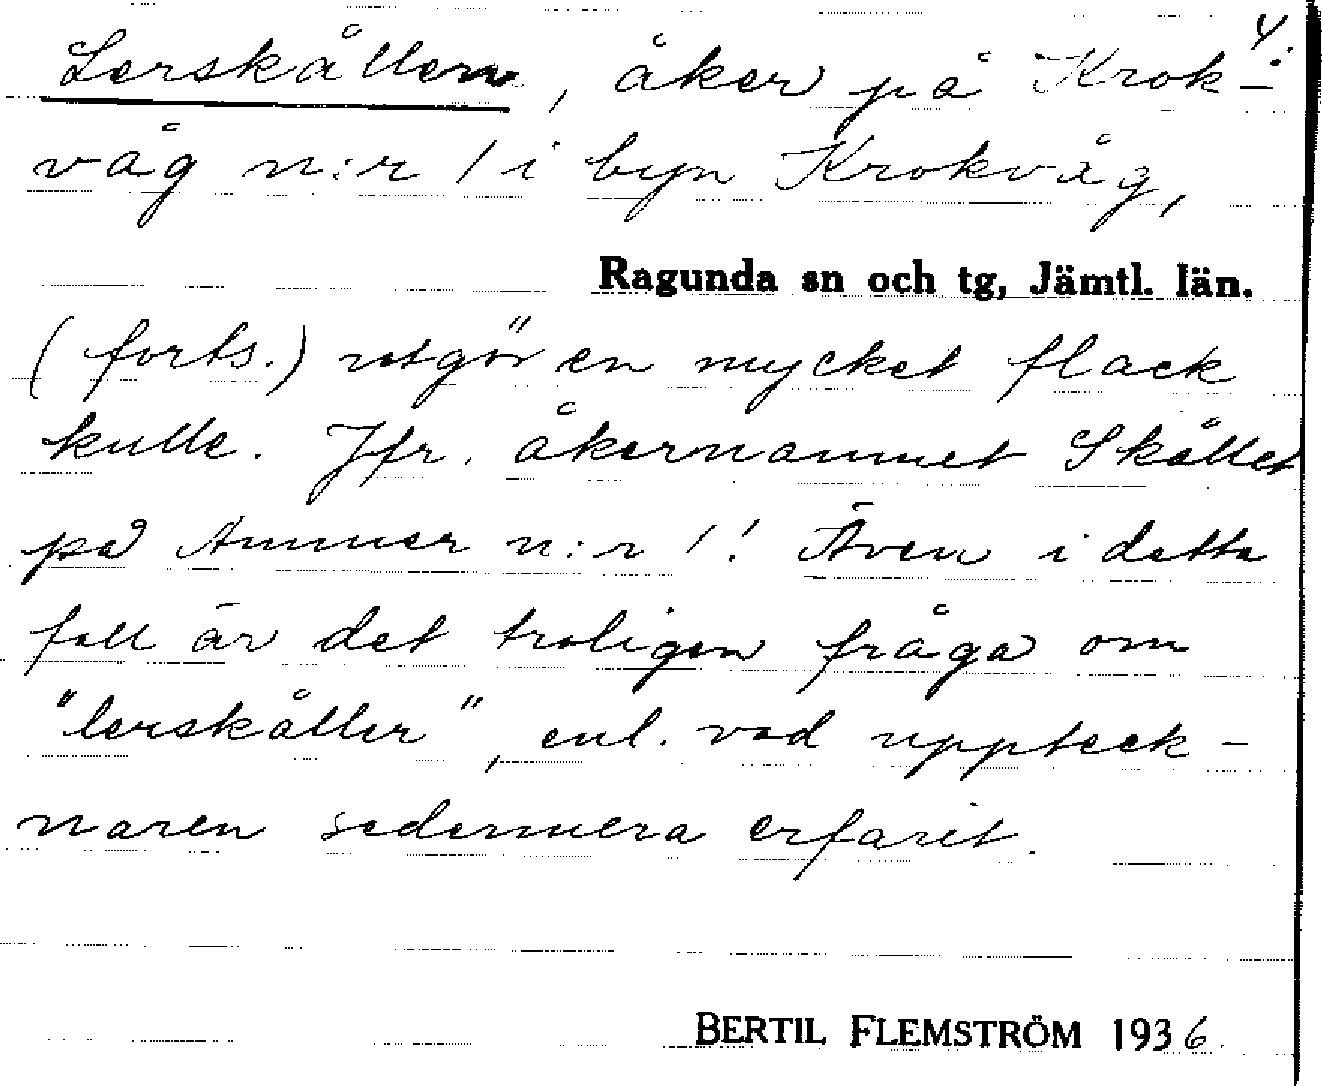 4.
Lerskållen, åker på Krok-
våg n:r 1 i byn Krokvåg,
Ragunda sn och tg, Jämtl. län.
(forts.) utgör en mycket flack
kulle. Jfr. åkernamnet Skållet
på Ammer n:r 1! Även i detta
fall är det troligen fråga om
"lerskåller", enl. vad uppteck-
naren sedermera erfarit.
BERTIL FLEMSTRÖM 1936